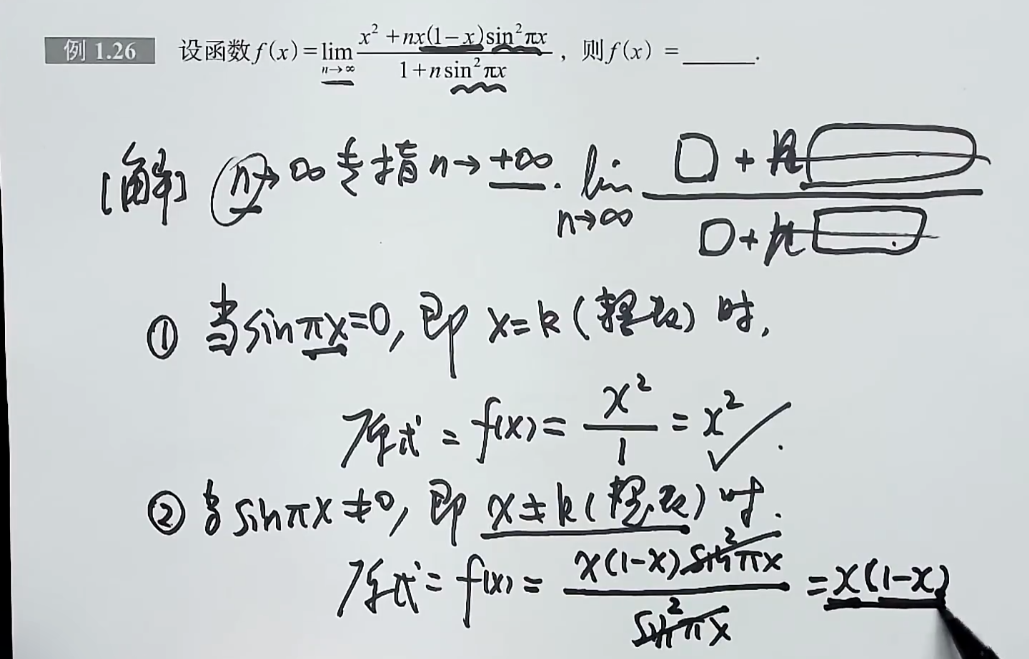 例 1.26 设函数 f(x)=lim n→∞ (x²+nx(1-x)sin²πx)/(1+nsin²πx), 则 f(x) =______.
[解] n→∞ 专指 n→+∞. lim n→∞ (□+n□)/(□+n□)
① 当sinπx=0, 即 x=k(整数) 时,
原式 = f(x) = x²/1 = x² ✓.
② 当 sinπx≠0, 即 x≠k(整数) 时.
原式 = f(x) = x(1-x)sin²πx/sin²πx = x(1-x)